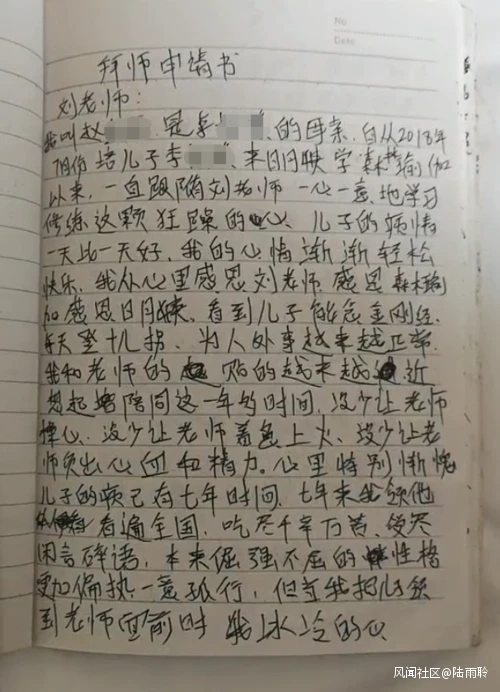 No
Date
拜师申请书
刘老师:
我叫赵 是李 的母亲,自从2018年
7月份 培儿子李 来日月映学森林瑜伽
以来,一直跟随刘老师一心一意地学习
修练这颗狂躁的心、儿子的病情
一天比一天好,我的心情渐渐轻松
快乐,我从心里感恩刘老师,感恩森林瑜
加感恩日月映,看到儿子能念金刚经,
每天登十八拐,为人处事越来越正常,
我和老师的 贴的越来越 近
想起 陪同这一年的时间,没少让老师
操心、没少让老师着急上火、没少让老
师负出心血和精力。心里特别惭愧
儿子的病已有七年时间,七年来我领他
看遍全国,吃尽千辛万苦、受尽
闲言碎语,本来倔强不屈的 性格
更加偏执一意孤行,但当我把儿子领
到老师面前时 我冰冷的心
风闻社区@陆雨聆